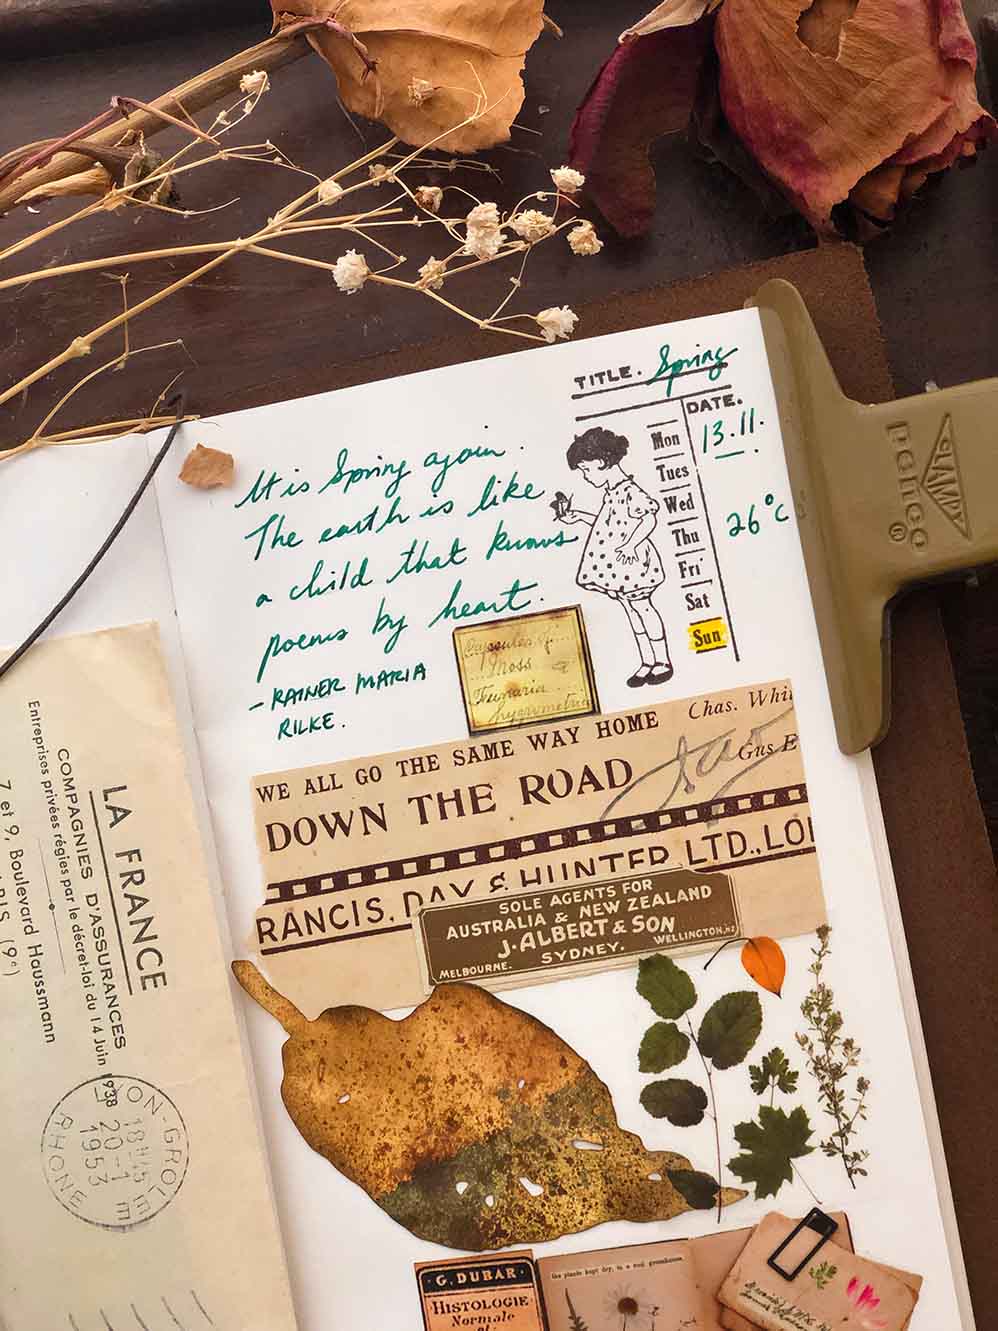 TITLE. Spring
DATE.
13.11.
26°C
Mon
Tues
Wed
Thu
Fri
Sat
Sun
It is Spring again.
The earth is like
a child that knows
poems by heart.
- RAINER MARIA
RILKE.
Capsules of
Moss
hygrometrica
WE ALL GO THE SAME WAY HOME
Chas. Whi
DOWN THE ROAD
Gus E
RANCIS, DAY & HUNTER LTD., LO
SOLE AGENTS FOR
AUSTRALIA & NEW ZEALAND
J. ALBERT & SON
MELBOURNE. SYDNEY. WELLINGTON, NZ
penco
CLAMPY
LA FRANCE
COMPAGNIES D'ASSURANCES
Entreprises privées régies par le décret-loi du 14 Juin 1938
7 et 9, Boulevard Haussmann
PARIS (9e)
ON-GROL
18H45
20-1
1953
RHONE
G. DUBAR
HISTOLOGIE
Normale
et
the plants kept dry, in a cool greenhouse.